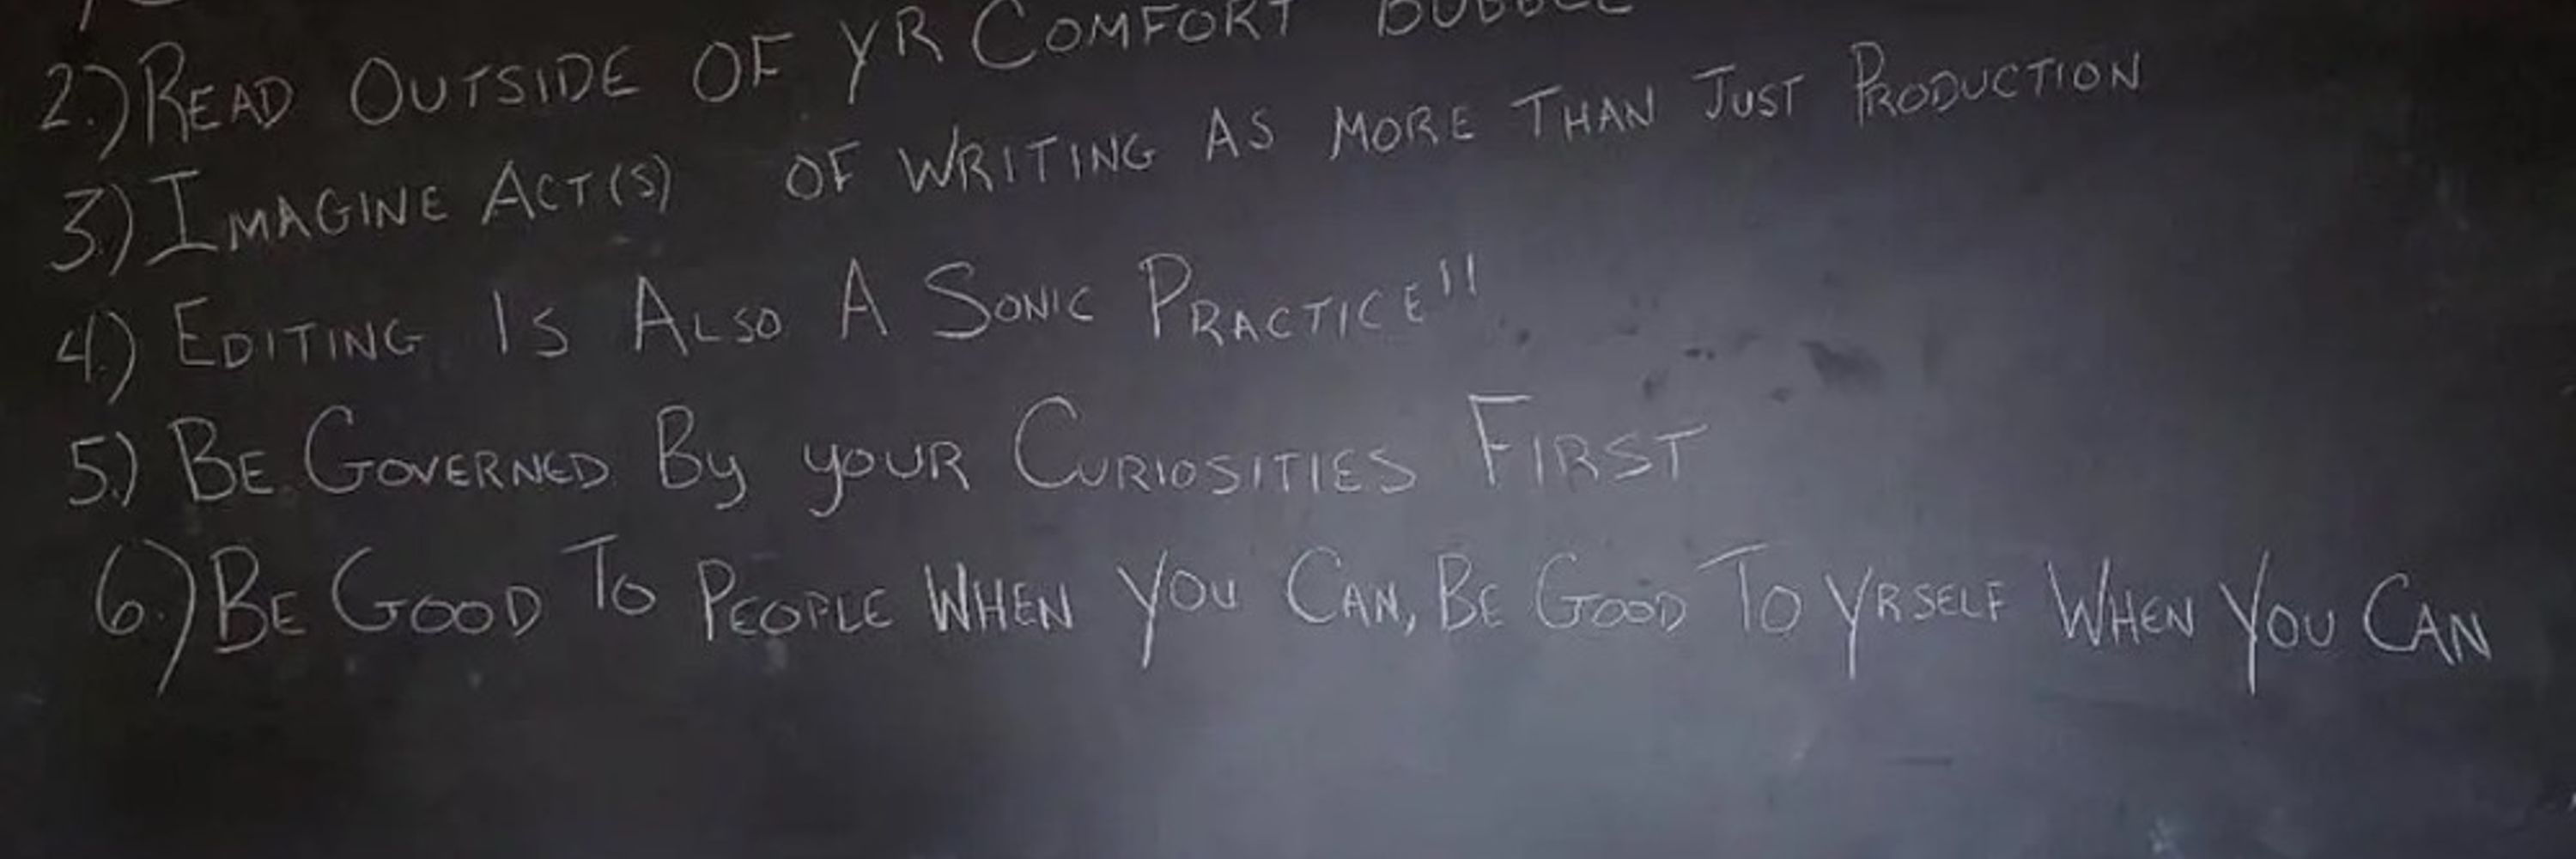 2.) READ OUTSIDE OF YR COMFORT BUBBLE
3.) IMAGINE ACT(S) OF WRITING AS MORE THAN JUST PRODUCTION
4.) EDITING IS ALSO A SONIC PRACTICE!!
5.) BE GOVERNED BY YOUR CURIOSITIES FIRST
6.) BE GOOD TO PEOPLE WHEN YOU CAN, BE GOOD TO YRSELF WHEN YOU CAN